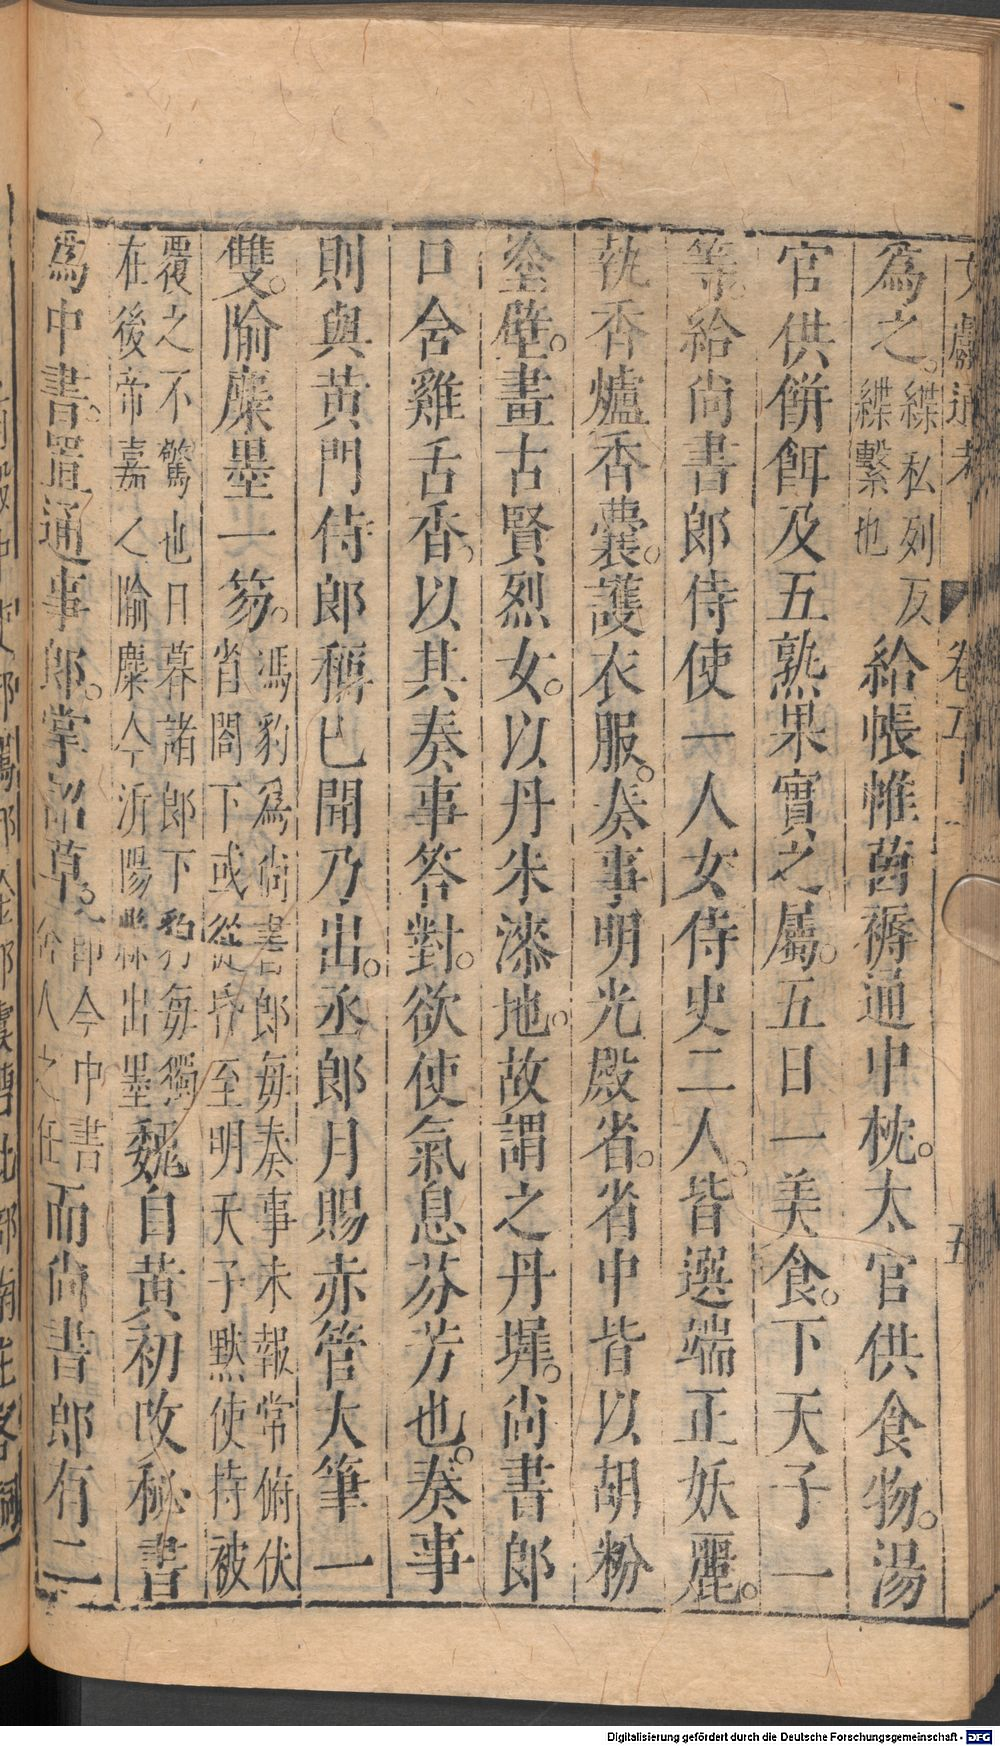 文獻通考 卷五十一 五
爲之。緤私列反緤繫也給帳帷茵褥通中枕。太官供食物。湯
官供餅餌及五熟果實之屬。五日一美食。下天子一
等。給尚書郎侍使一人女侍史二人。皆選端正妖麗。
執香爐香囊。護衣服。奏事明光殿省。省中皆以胡粉
塗壁。畫古賢烈女。以丹朱漆地。故謂之丹墀。尚書郎
口含雞舌香。以其奏事答對。欲使氣息芬芳也。奏事
則與黃門侍郎稱已聞乃出。丞郎月賜赤管大筆一
雙。隃麋墨一笏。馮豹爲尚書郎每奏事未報常俯伏省閤下或從昏至明天子默使持被
覆之不驚也日暮諸郎下豹每獨在後帝嘉之隃麋今汧陽縣出墨魏自黃初攺秘書
爲中書。置通事郎。掌詔草。即今中書舍人之任而尚書郎有二
Digitalisierung gefördert durch die Deutsche Forschungsgemeinschaft - DFG